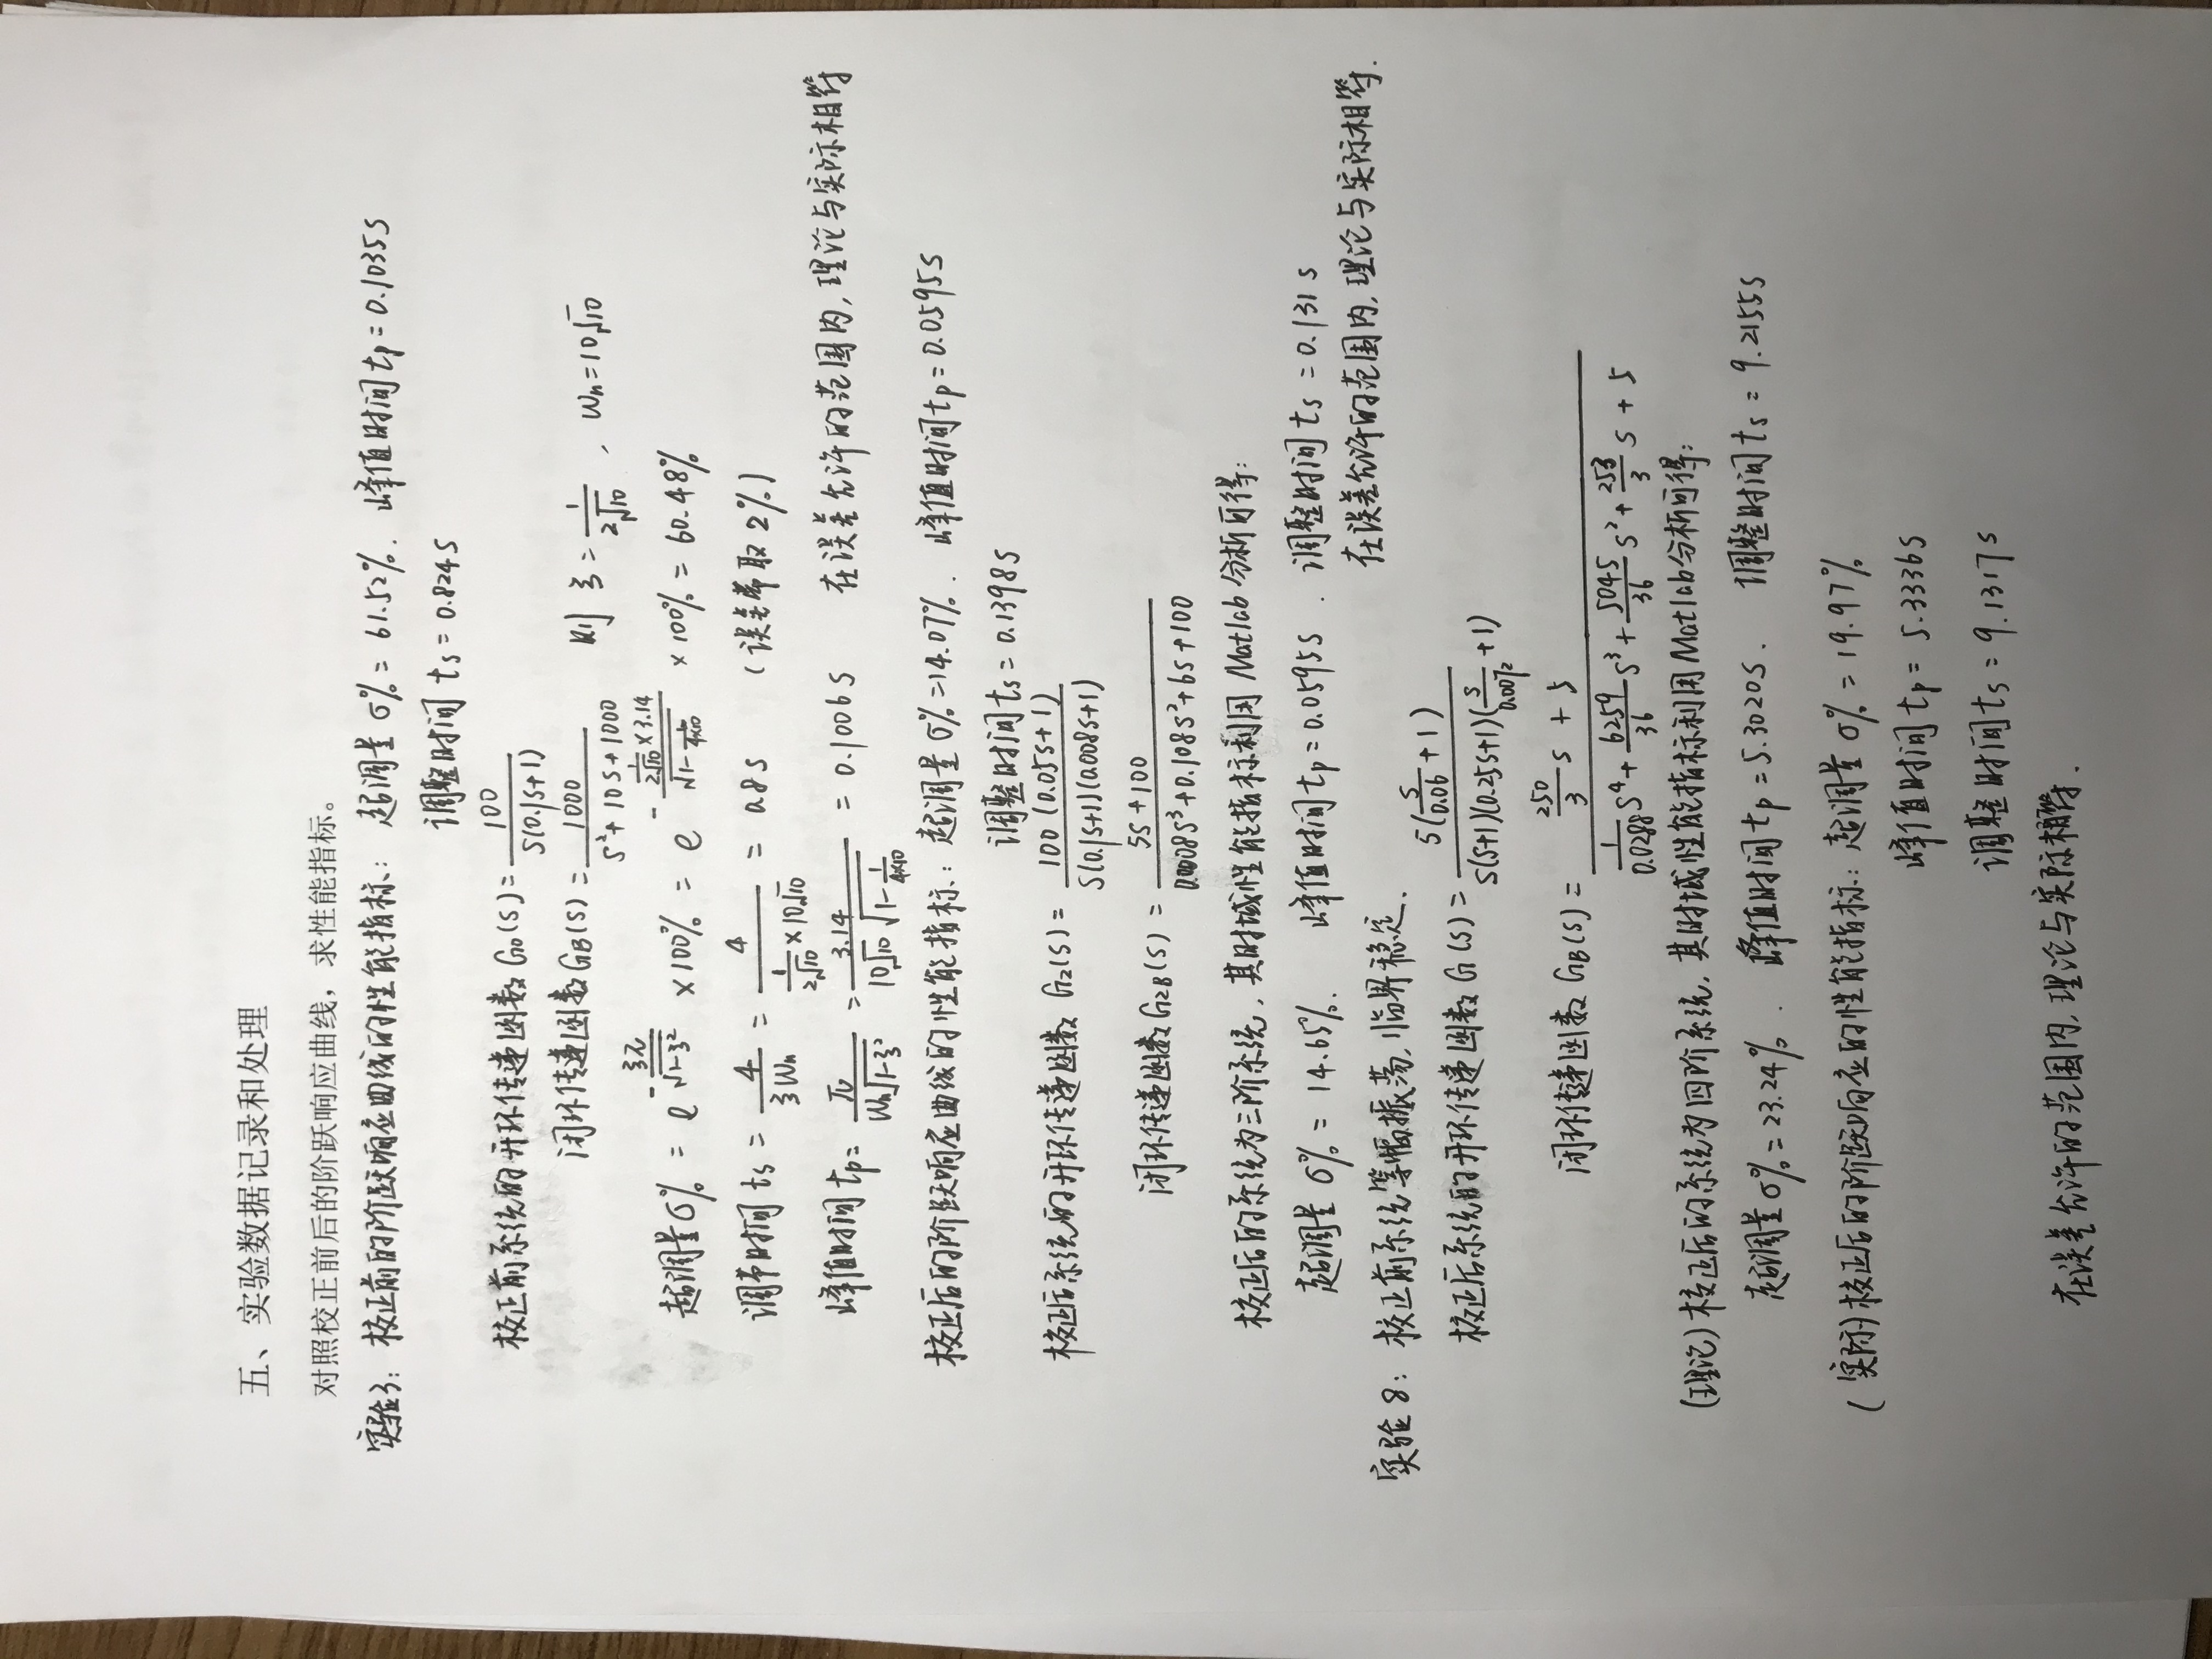 五、实验数据记录和处理
对照校正前后的阶跃响应曲线，求性能指标。
实验3: 校正前的阶跃响应曲线的性能指标: 超调量 σ% = 61.52%. 峰值时间 tp = 0.1035s
调整时间 ts = 0.824s
校正前系统的开环传递函数 G0(s) = 100 / s(0.1s+1)
闭环传递函数 GB(s) = 1000 / s²+10s+1000 则 ξ = 1/2√10 , Wn = 10√10
超调量 σ% = e^(-ξπ/√1-ξ²) ×100% = e^(-(1/2√10 × 3.14)/√1-1/4×10) ×100% = 60.48%
调节时间 ts = 4/ξWn = 4/(1/2√10 × 10√10) = 0.8s (误差带取 2%)
峰值时间 tp = π/Wn√1-ξ² = 3.14/10√10 √1-1/4×10 = 0.1006s 在误差允许的范围内, 理论与实际相符
校正后的阶跃响应曲线的性能指标: 超调量 σ% = 14.07%. 峰值时间 tp = 0.0595s
调整时间 ts = 0.1398s
校正后系统的开环传递函数 G2(s) = 100(0.05s+1) / s(0.1s+1)(0.008s+1)
闭环传递函数 G2B(s) = 5s+100 / 0.0008s³+0.108s²+6s+100
校正后的系统为三阶系统, 其时域性能指标利用 Matlab 分析可得:
超调量 σ% = 14.65%. 峰值时间 tp = 0.0595s . 调整时间 ts = 0.131s
在误差允许的范围内, 理论与实际相符.
实验8: 校正前系统等幅振荡, 临界稳定.
校正后系统的开环传递函数 G(s) = 5(s/0.06 + 1) / s(s+1)(0.25s+1)(s/0.0072 + 1)
闭环传递函数 GB(s) = 250/3 s + 5 / 1/0.0288 s⁴ + 6259/36 s³ + 5045/36 s² + 253/3 s + 5
(理论) 校正后的系统为四阶系统, 其时域性能指标利用 Matlab 分析可得:
超调量 σ% = 23.24% . 峰值时间 tp = 5.3020s. 调整时间 ts = 9.2155s
(实际) 校正后的阶跃响应的性能指标: 超调量 σ% = 19.97%
峰值时间 tp = 5.3336s
调整时间 ts = 9.1317s
在误差允许的范围内, 理论与实际相符.